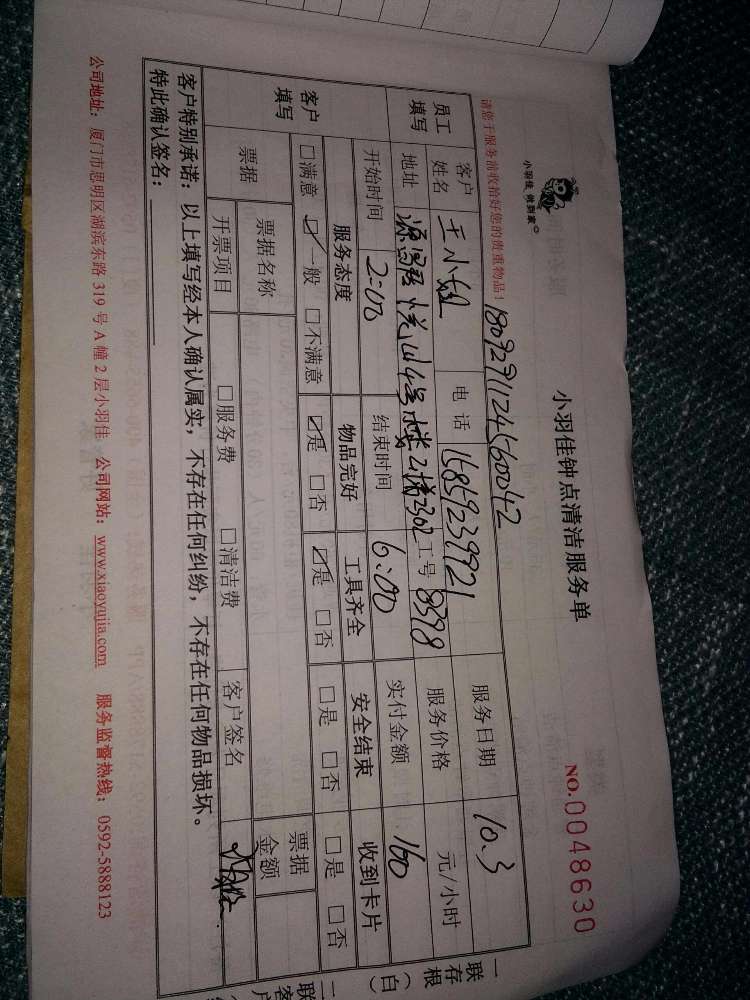 小羽佳 做到家
小羽佳钟点清洁服务单
NO.0048630
请您于服务前收拾好您的贵重物品!
员工填写
客户姓名 王小姐 电话 15859239921 服务日期 10.3
工号 8398 服务价格 元/小时
开始时间 2:00 结束时间 6:00 实付金额 160
客户填写
服务态度 物品完好 工具齐全 安全结束 收到卡片
□满意 ☑一般 □不满意 ☑是 □否 ☑是 □否 □是 □否 □是 □否
票据 票据名称 票据金额
开票项目 □服务费 □清洁费 客户签名
客户特别承诺:以上填写经本人确认属实,不存在任何纠纷,不存在任何物品损坏。
特此确认签名:
公司地址:厦门市思明区湖滨东路 319 号 A 幢 2 层小羽佳 公司网站:www.xiaoyujia.com 服务监督热线:0592-5888123
一联存根(白)